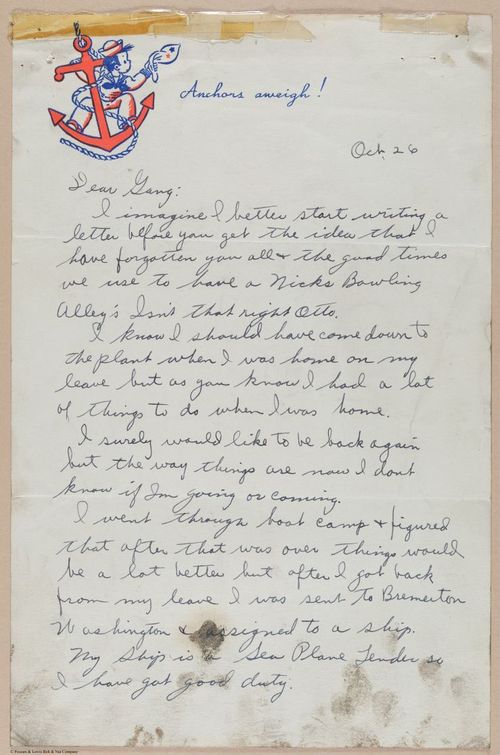 Anchors aweigh!
Oct. 26
Dear Gang:
I imagine I better start writing a
letter before you get the idea that I
have forgotten you all & the good times
we use to have a Nicks Bowling
Alley's Isn't that right Otto.
I know I should have come down to
the plant when I was home on my
leave but as you know I had a lot
of things to do when I was home.
I surely would like to be back again
but the way things are now I dont
know if Im going or coming.
I went through boot camp & figured
that after that was over things would
be a lot better but after I got back
from my leave I was sent to Bremerton
Washington & assigned to a ship.
My ship is a Sea Plane Tender so
I have got good duty.